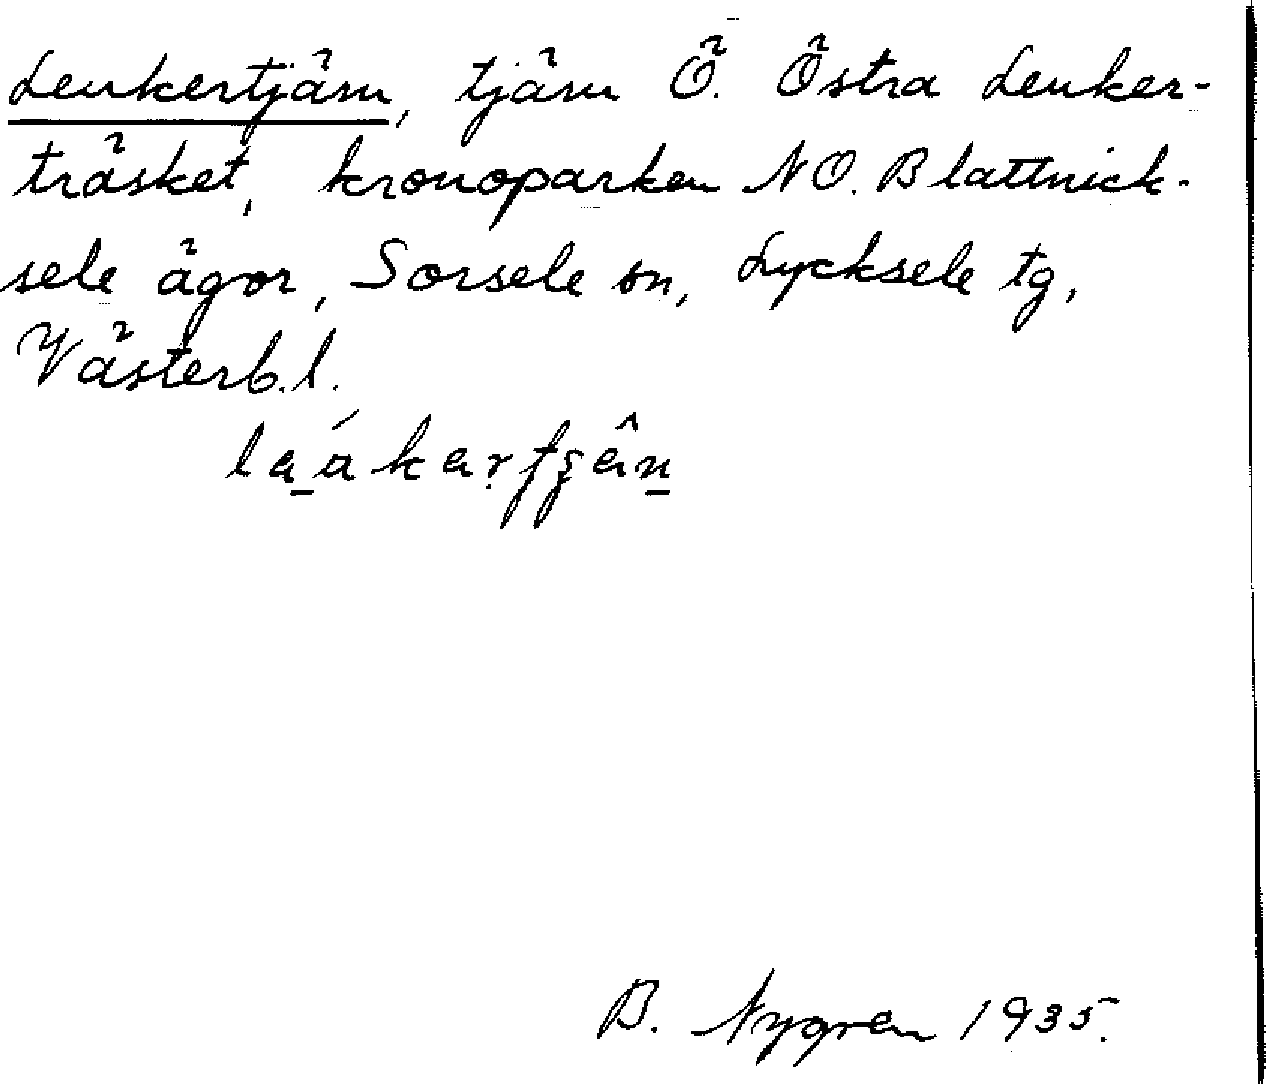 Leukertjärn, tjärn Ö. Östra Leuker-
träsket, kronoparken NO. Blattnick-
sele ägor, Sorsele sn, Lycksele tg,
Västerb.l.
B. Nygren 1935.